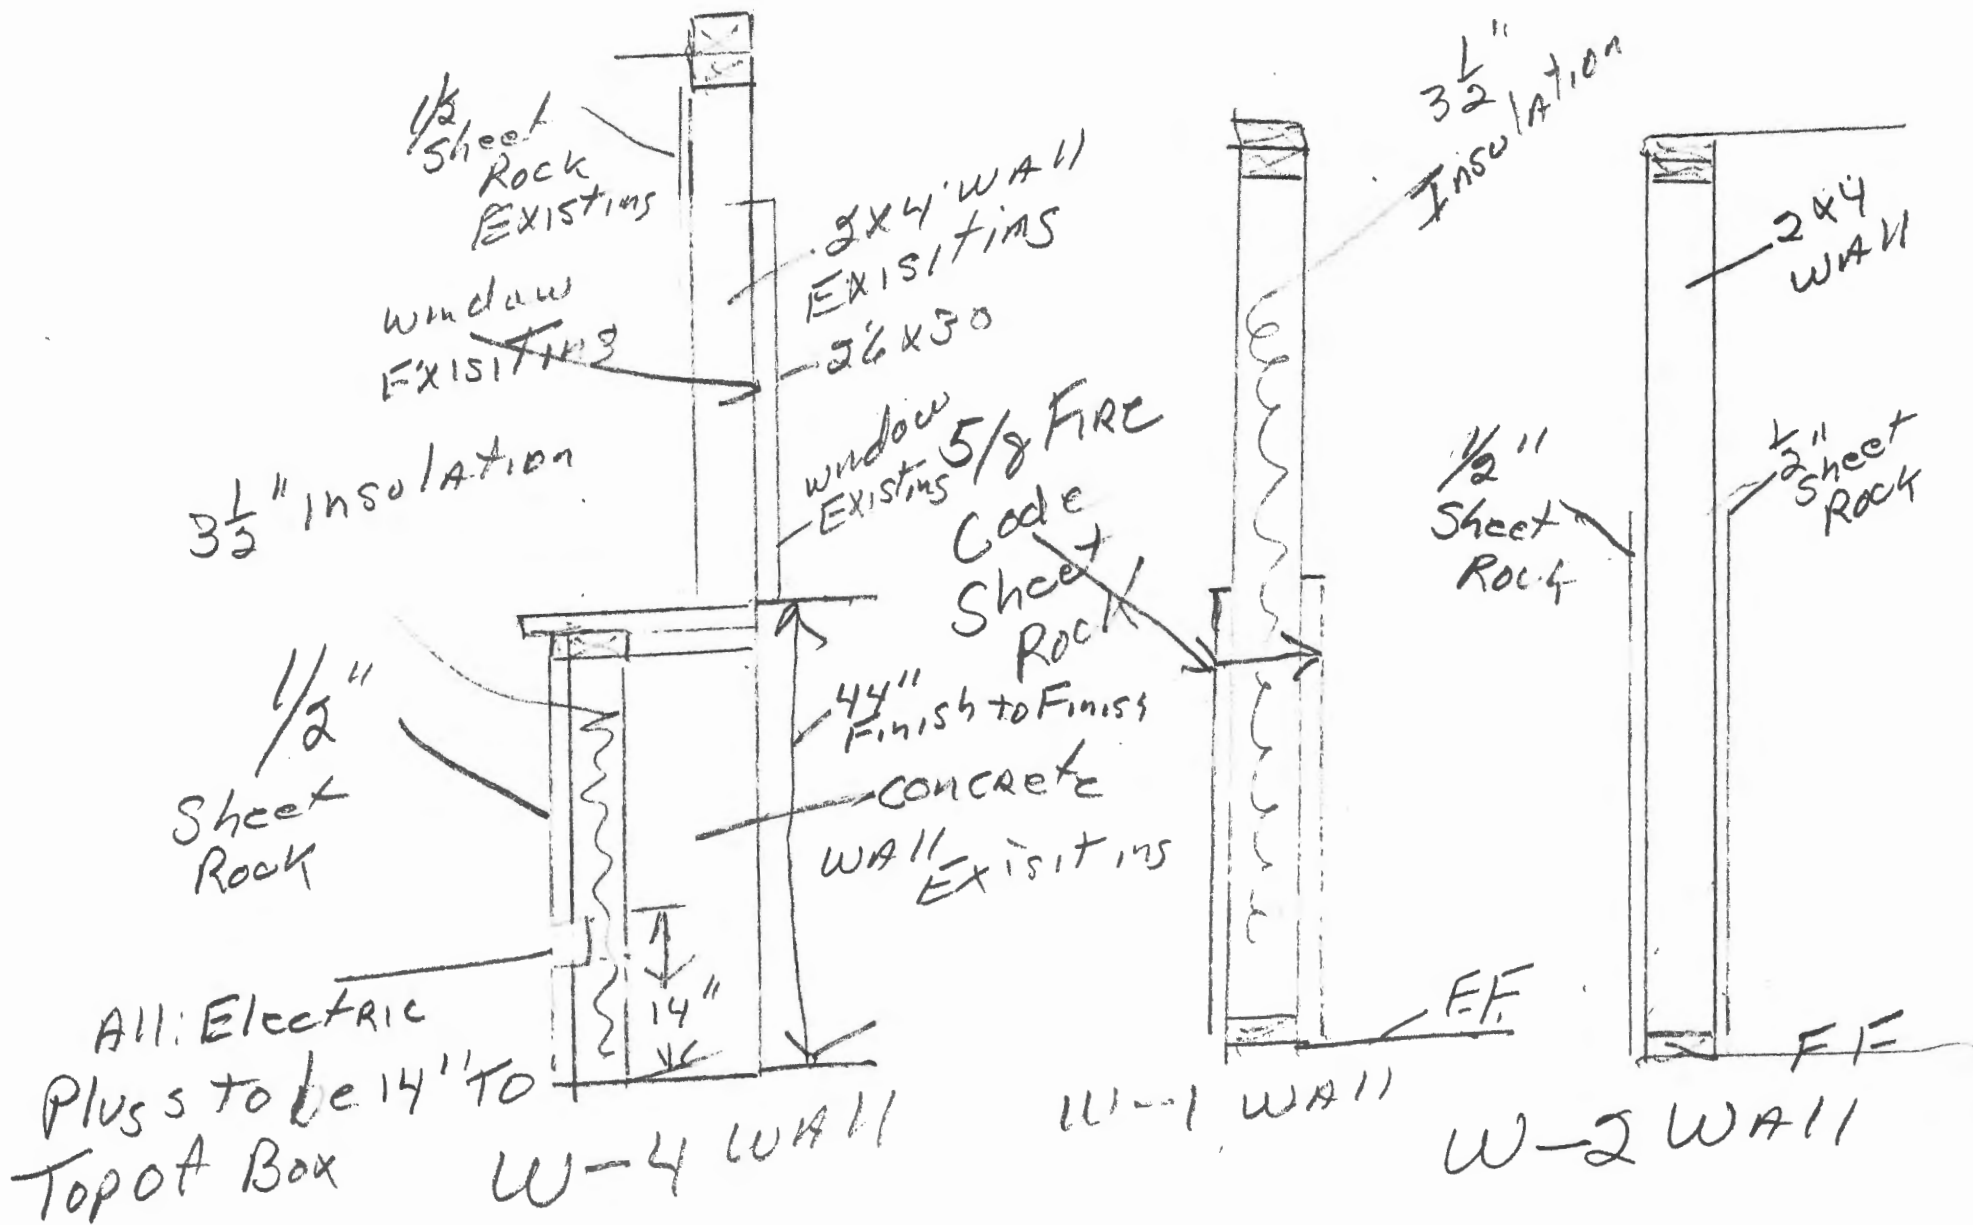 1/2
Sheet
Rock
Existing
2x4 WALL
EXISITING
window
EXISITING
26x30
window
Existing
3 1/2" insolation
1/2"
Sheet
Rock
44"
Finish to Finish
concrete
WALL
Existing
14"
All: Electric
Plugs to be 14" TO
Top of Box
W-4 WALL
3 1/2"
Insolation
5/8 FIRE
Code
Sheet
Rock
F.F.
W-1 WALL
2x4
WALL
1/2"
Sheet
Rock
1/2"
Sheet
Rock
FF
W-2 WALL